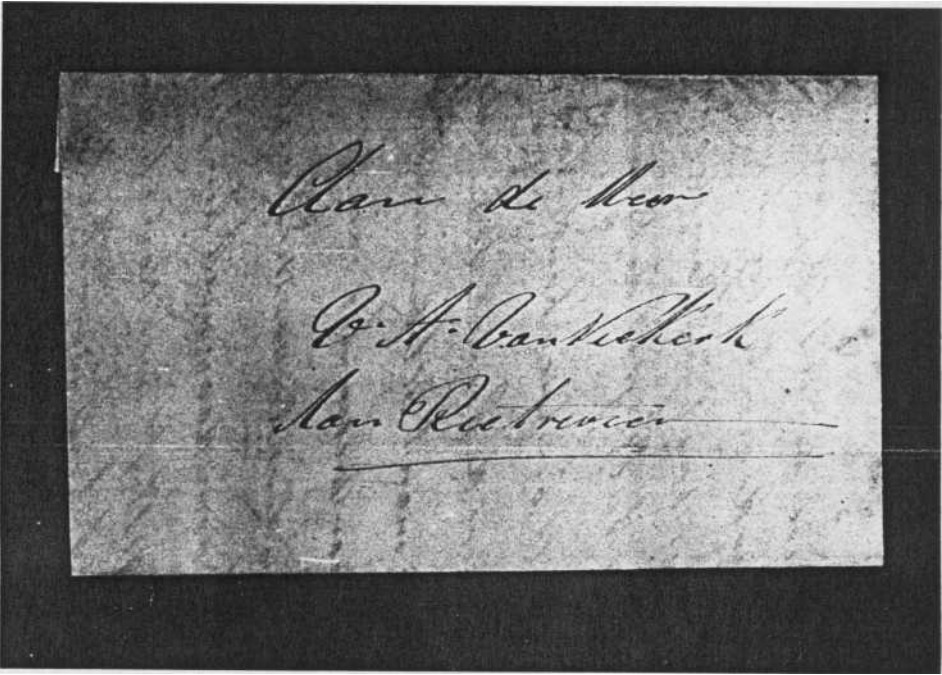 Aan de Heer
V. A. VanNiekerk
Aan Rietrivier